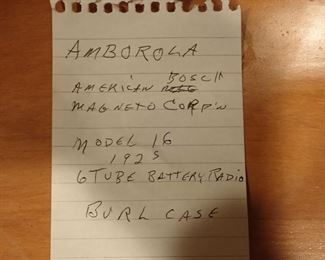 AMBOROLA
AMERICAN BOSCH
MAGNETO CORP'N
MODEL 16
1925
6 TUBE BATTERY RADIO
BURL CASE